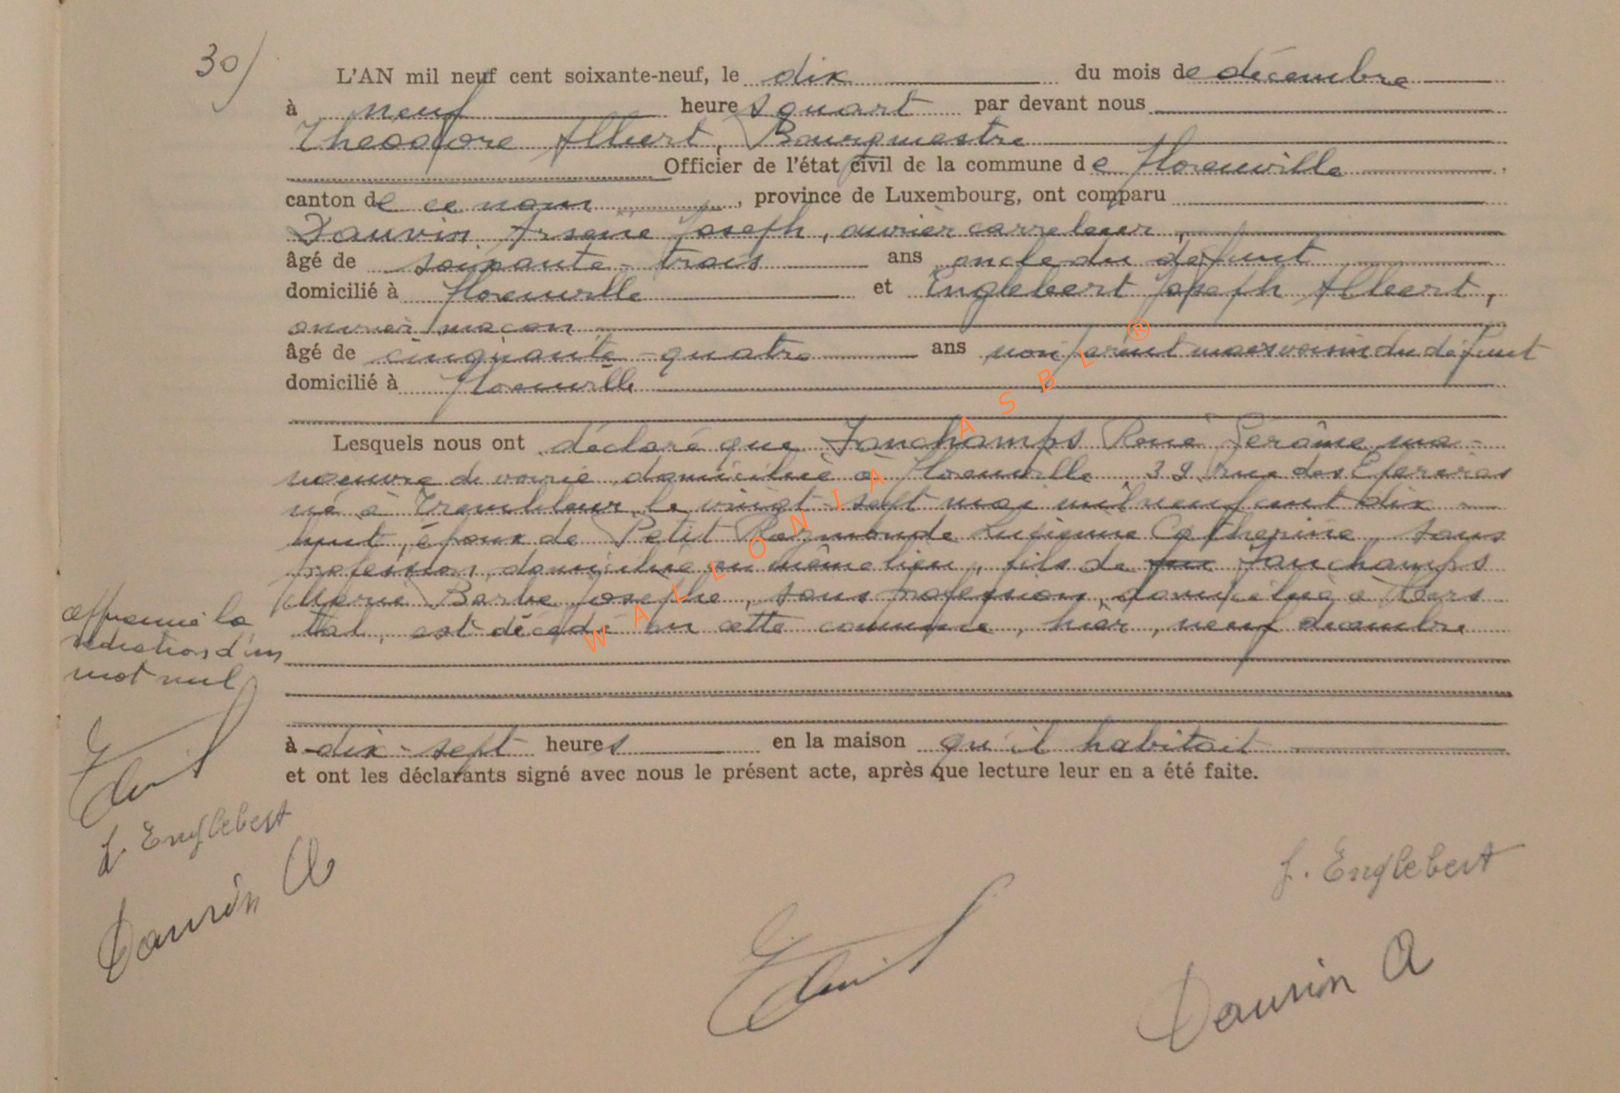 30/
L'AN mil neuf cent soixante-neuf, le dix du mois de décembre
à neuf heures quart par devant nous
Théodore Albert, Bourgmestre
Officier de l'état civil de la commune de Florenville
canton de ce nom, province de Luxembourg, ont comparu
Dauvin Arsène Joseph, ouvrier carreleur,
âgé de soixante-trois ans oncle du défunt
domicilié à Florenville et Englebert Joseph Albert,
ouvrier maçon
âgé de cinquante-quatre ans non parent mais voisin du défunt
domicilié à Florenville
Lesquels nous ont déclaré que Fanchamps René Jérôme ma-
noeuvre de voirie domicilié à Florenville 39 rue des
né à Trembleur le vingt-sept mai mil neuf cent dix
huit, époux de Petit Raymonde Lucienne Catherine, sans
profession, domiciliée au même lieu, fils de Fanchamps
Marie Barbe Josèphe, sans profession, domiciliée à Thiers
est décédé en cette commune, hier, neuf décembre
à dix-sept heures en la maison qu'il habitait
et ont les déclarants signé avec nous le présent acte, après que lecture leur en a été faite.
approuvé la
radiation d'un
mot nul
J. Englebert
Dauvin A
J. Englebert
Dauvin A
WALLONIA ASBL ®